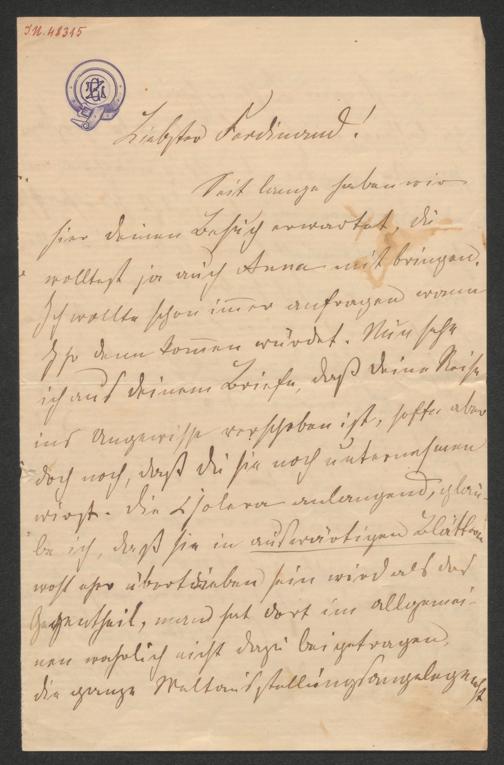 I.N. 48315
Liebster Ferdinand!
Seit lange haben wir
hier deinen Besuch erwartet, du
wolltest ja auch Anna mit bringen.
Ich wollte schon immer anfragen wann
Ihr denn kommen würdet. Nun sehe
ich aus deinem Briefe, daß deine Reise
ins Ungewisse verschoben ist, hoffe aber
doch noch, daß du sie noch unternehmen
wirst. Die Cholera anlangend, glau-
be ich, daß sie in auswärtigen Blättern
wohl eher übertrieben sein wird als das
Gegentheil, man hat dort im allgemei-
nen wahrlich nicht dazu beigetragen,
die ganze Weltausstellungsangelegenht